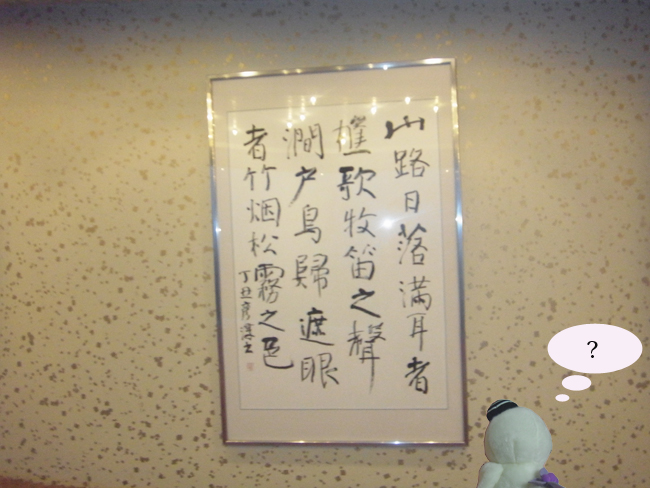 山路日落満耳者
樵歌牧笛之聲
澗戸鳥歸遮眼
者竹烟松霧之色
丁丑
?